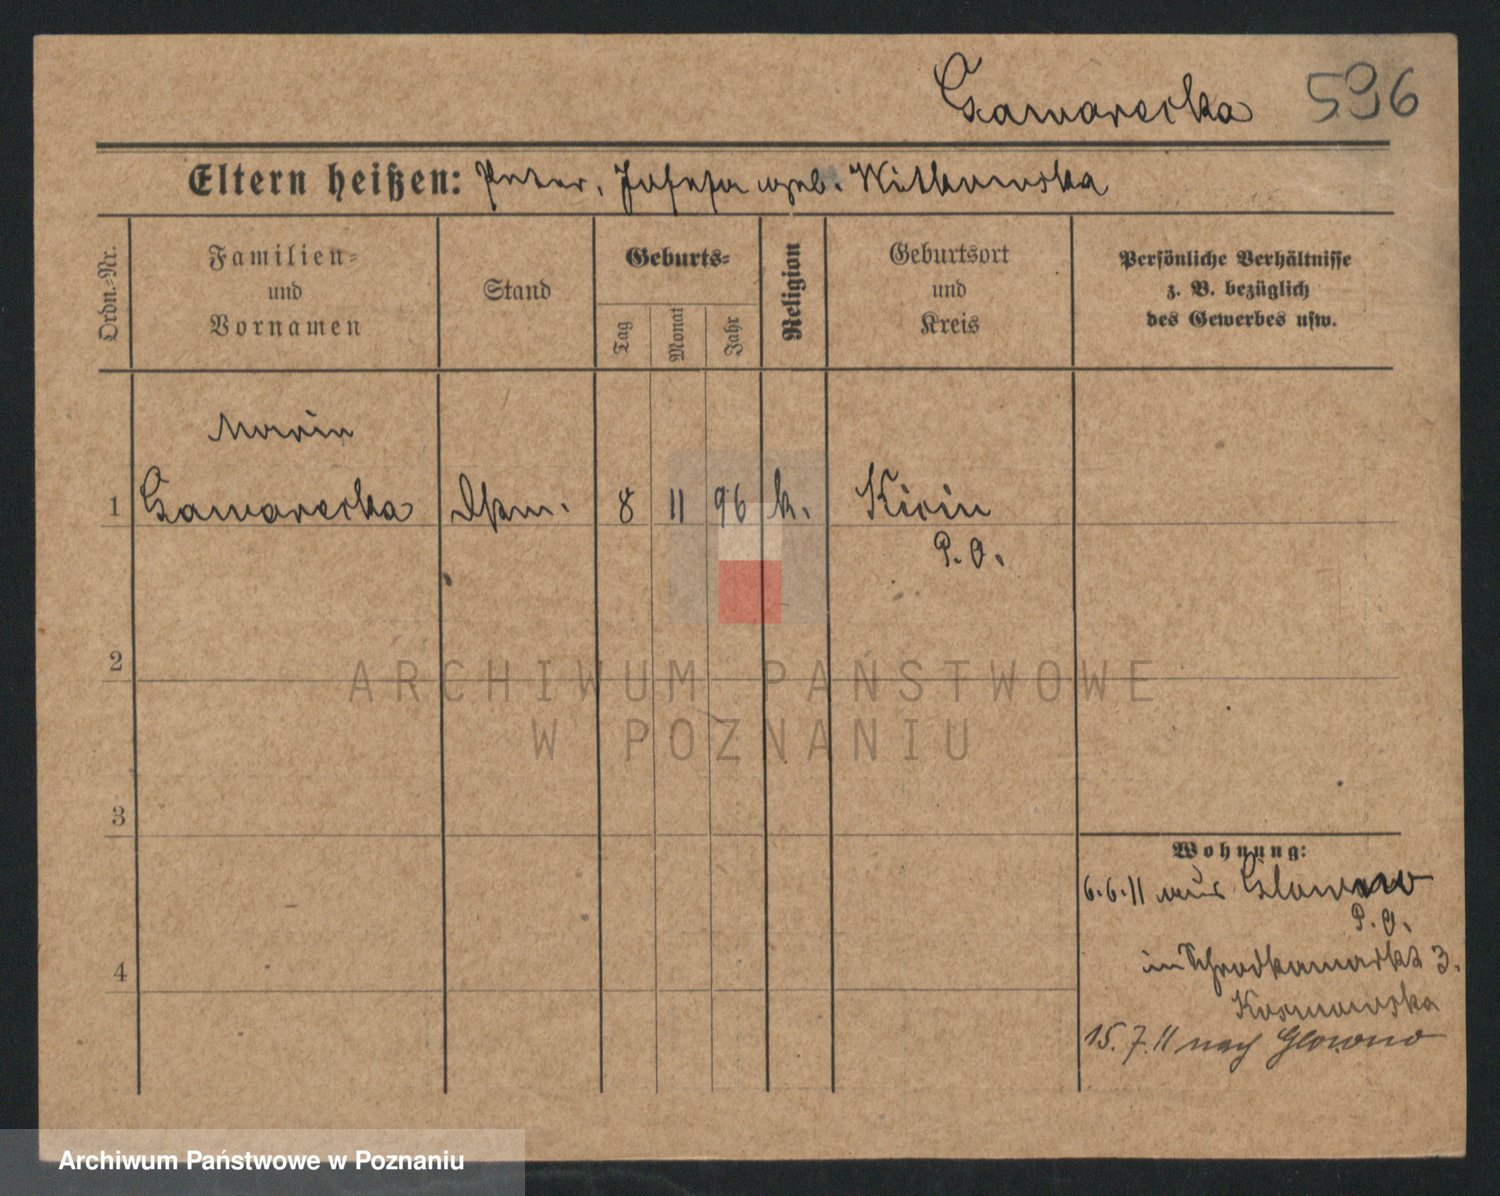 Gawarecka 596
Eltern heißen: Peter, Josefa geb. Witkowska
Ordn.-Nr.
Familien-
und
Vornamen
Stand
Geburts-
Tag
Monat
Jahr
Religion
Geburtsort
und
Kreis
Persönliche Verhältnisse
z. B. bezüglich
des Gewerbes usw.
Maria
1 Gawarecka 8 11 96 k. Kicin
P. O.
2
3
4
Wohnung:
6.6.11 aus Glowno
P. O.
in Schrodkamarkt 3.
15.7.11 nach Glowno
ARCHIWUM PAŃSTWOWE
W POZNANIU
Archiwum Państwowe w Poznaniu